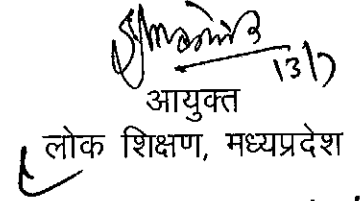 13/7
आयुक्त
लोक शिक्षण, मध्यप्रदेश